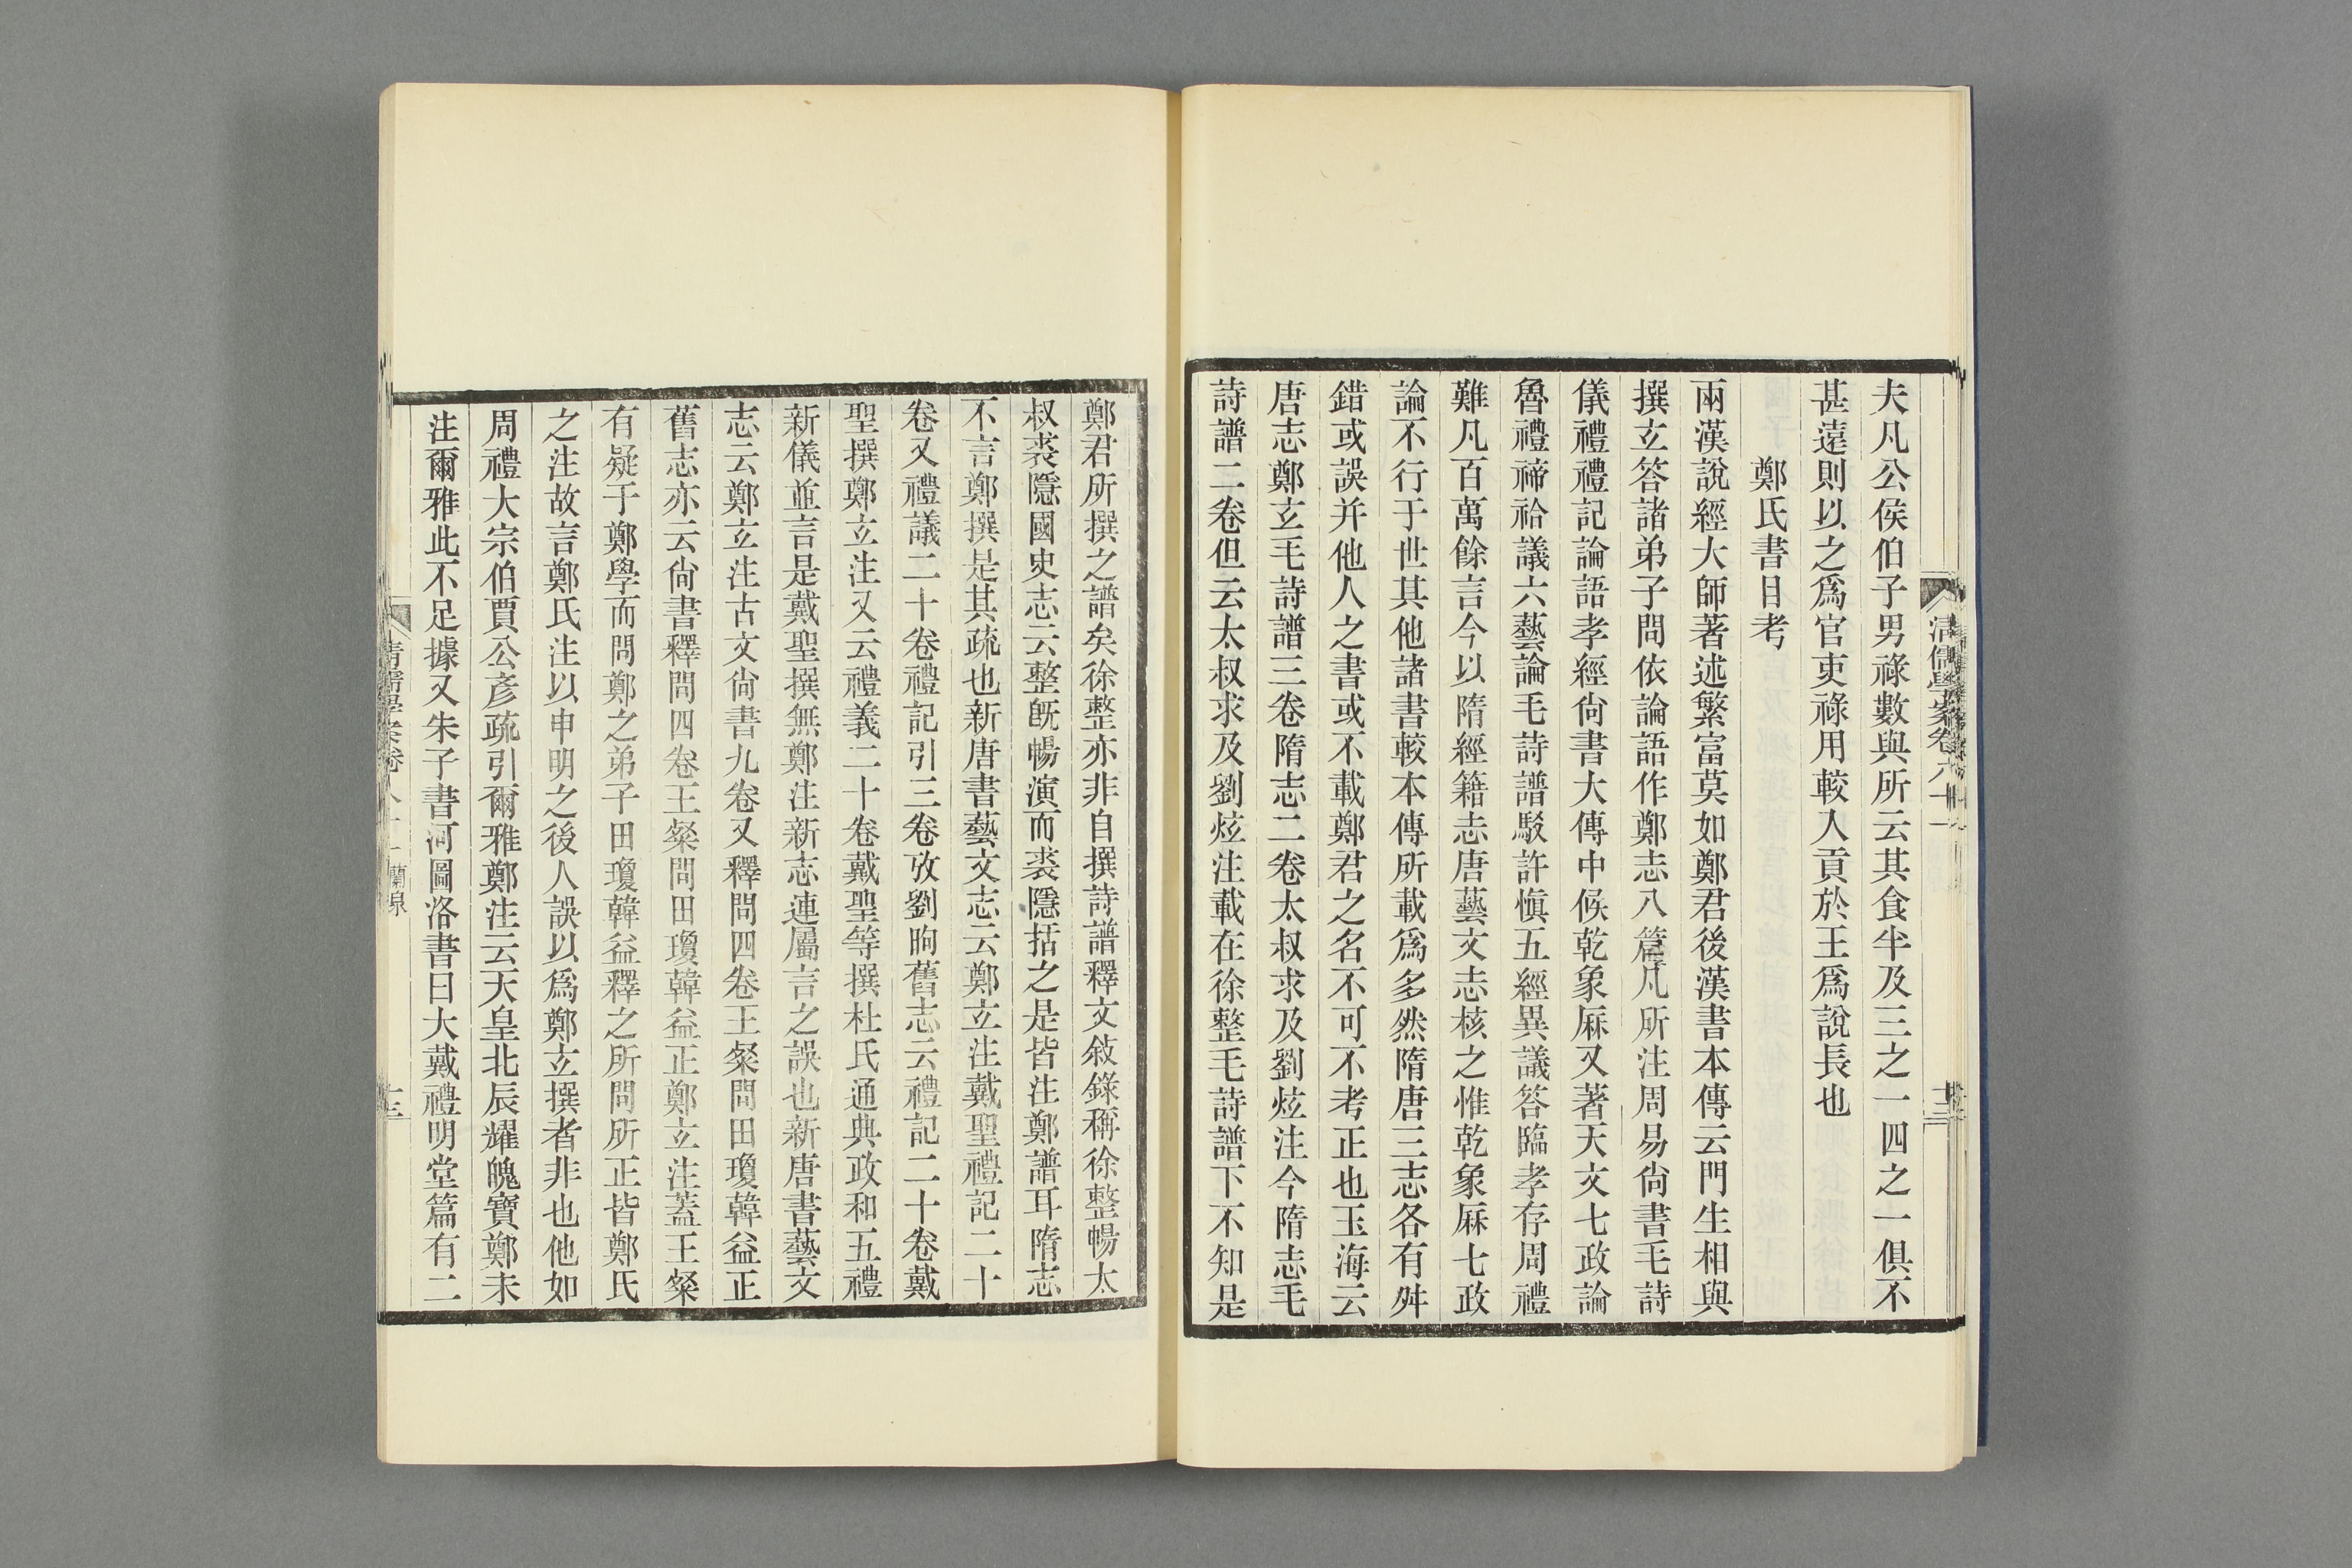 夫凡公侯伯子男祿數與所云其食半及三之一四之一俱不
甚遠則以之爲官吏祿用較入貢於王爲說長也
鄭氏書目考
兩漢說經大師著述繁富莫如鄭君後漢書本傳云門生相與
撰玄答諸弟子問依論語作鄭志八篇凡所注周易尙書毛詩
儀禮禮記論語孝經尙書大傳中候乾象厤又著天文七政論
魯禮禘祫議六藝論毛詩譜駁許愼五經異議答臨孝存周禮
難凡百萬餘言今以隋經籍志唐藝文志核之惟乾象厤七政
論不行于世其他諸書較本傳所載爲多然隋唐三志各有舛
錯或誤并他人之書或不載鄭君之名不可不考正也玉海云
唐志鄭玄毛詩譜三卷隋志二卷太叔求及劉炫注今隋志毛
詩譜二卷但云太叔求及劉炫注載在徐整毛詩譜下不知是
鄭君所撰之譜矣徐整亦非自撰詩譜釋文敘錄稱徐整暢太
叔裘隱國史志云整旣暢演而裘隱括之是皆注鄭譜耳隋志
不言鄭撰是其疏也新唐書藝文志云鄭玄注戴聖禮記二十
卷又禮議二十卷禮記引三卷攷劉昫舊志云禮記二十卷戴
聖撰鄭玄注又云禮義二十卷戴聖等撰杜氏通典政和五禮
新儀並言是戴聖撰無鄭注新志連屬言之誤也新唐書藝文
志云鄭玄注古文尙書九卷又釋問四卷王粲問田瓊韓益正
舊志亦云尙書釋問四卷王粲問田瓊韓益正鄭玄注蓋王粲
有疑于鄭學而問鄭之弟子田瓊韓益釋之所問所正皆鄭氏
之注故言鄭氏注以申明之後人誤以爲鄭玄撰者非也他如
周禮大宗伯賈公彥疏引爾雅鄭注云天皇北辰耀魄寶鄭未
注爾雅此不足據又朱子書河圖洛書曰大戴禮明堂篇有二